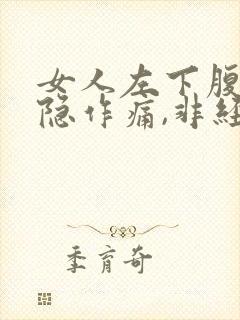 女人左下腹
隐作痛,非经
季育奇